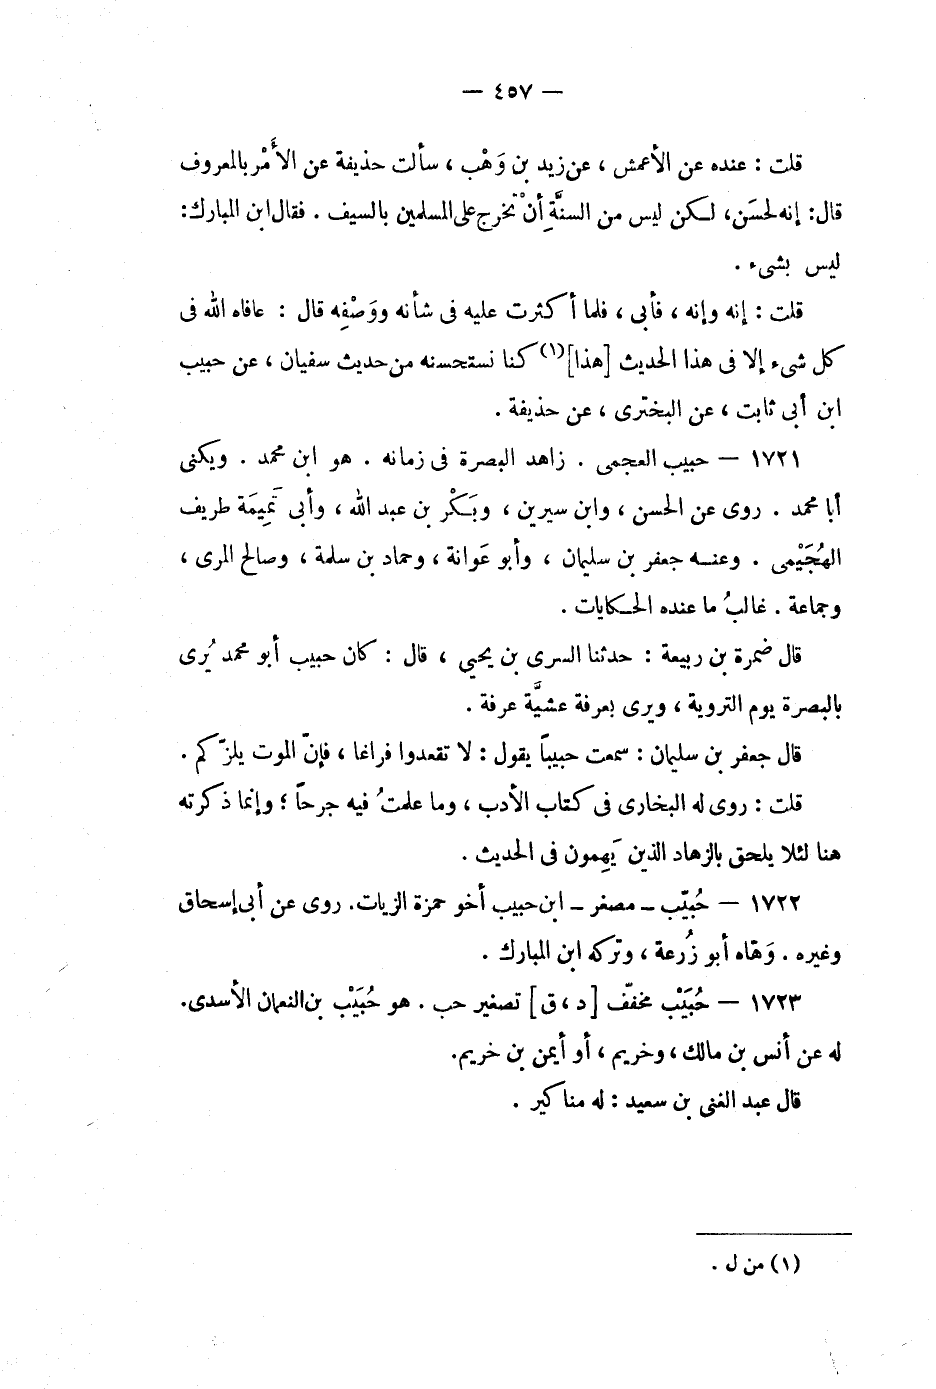 — ٤٥٧ —
قلت : عنده عن الأعمش ، عن زيد بن وَهْب ، سألت حذيفة عن الأَمْر بالمعروف
قال: إنه لحسَن، لكن ليس من السنَّةِ أنْ تخرج على المسلمين بالسيف . فقال ابن المبارك:
ليس بشىء .
قلت : إنه وإنه ، فأبى ، فلما أكثرت عليه فى شأنه ووَصْفِه قال : عافاه الله فى
كل شىء إلا فى هذا الحديث [هذا](١) كنا نستحسنه من حديث سفيان ، عن حبيب
ابن أبى ثابت ، عن البخترى ، عن حذيفة .
١٧٢١ — حبيب العجمى . زاهد البصرة فى زمانه . هو ابن محمد . ويكنى
أبا محمد . روى عن الحسن ، وابن سيرين ، وبَكْر بن عبد الله ، وأبى تَمِيمَة طريف
الهُجَيْمى . وعنه جعفر بن سليمان ، وأبو عَوانة ، وحماد بن سلمة ، وصالح المرى ،
وجماعة . غالبُ ما عنده الحكايات .
قال ضمرة بن ربيعة : حدثنا السرى بن يحيي ، قال : كان حبيب أبو محمد يُرى
بالبصرة يوم التروية ، ويرى بعرفة عشيَّة عرفة .
قال جعفر بن سليمان : سمعت حبيباً يقول : لا تقعدوا فراغا ، فإنّ الموت يلزّكم .
قلت : روى له البخارى فى كتاب الأدب ، وما علمتُ فيه جرحاً ؛ وإنما ذكرته
هنا لئلا يلحق بالزهاد الذين يَهِمون فى الحديث .
١٧٢٢ — حُبَيّب – مصغر – ابن حبيب أخو حمزة الزيات. روى عن أبى إسحاق
وغيره . وَهّاه أبو زُرعة ، وتركه ابن المبارك .
١٧٢٣ — حُبَيْب مخفّف [د ، ق] تصغير حب . هو حُبَيْب بن النعمان الأسدى.
له عن أنس بن مالك ، وخريم ، أو أيمن بن خريم.
قال عبد الغنى بن سعيد : له مناكير .
(١) من ل .